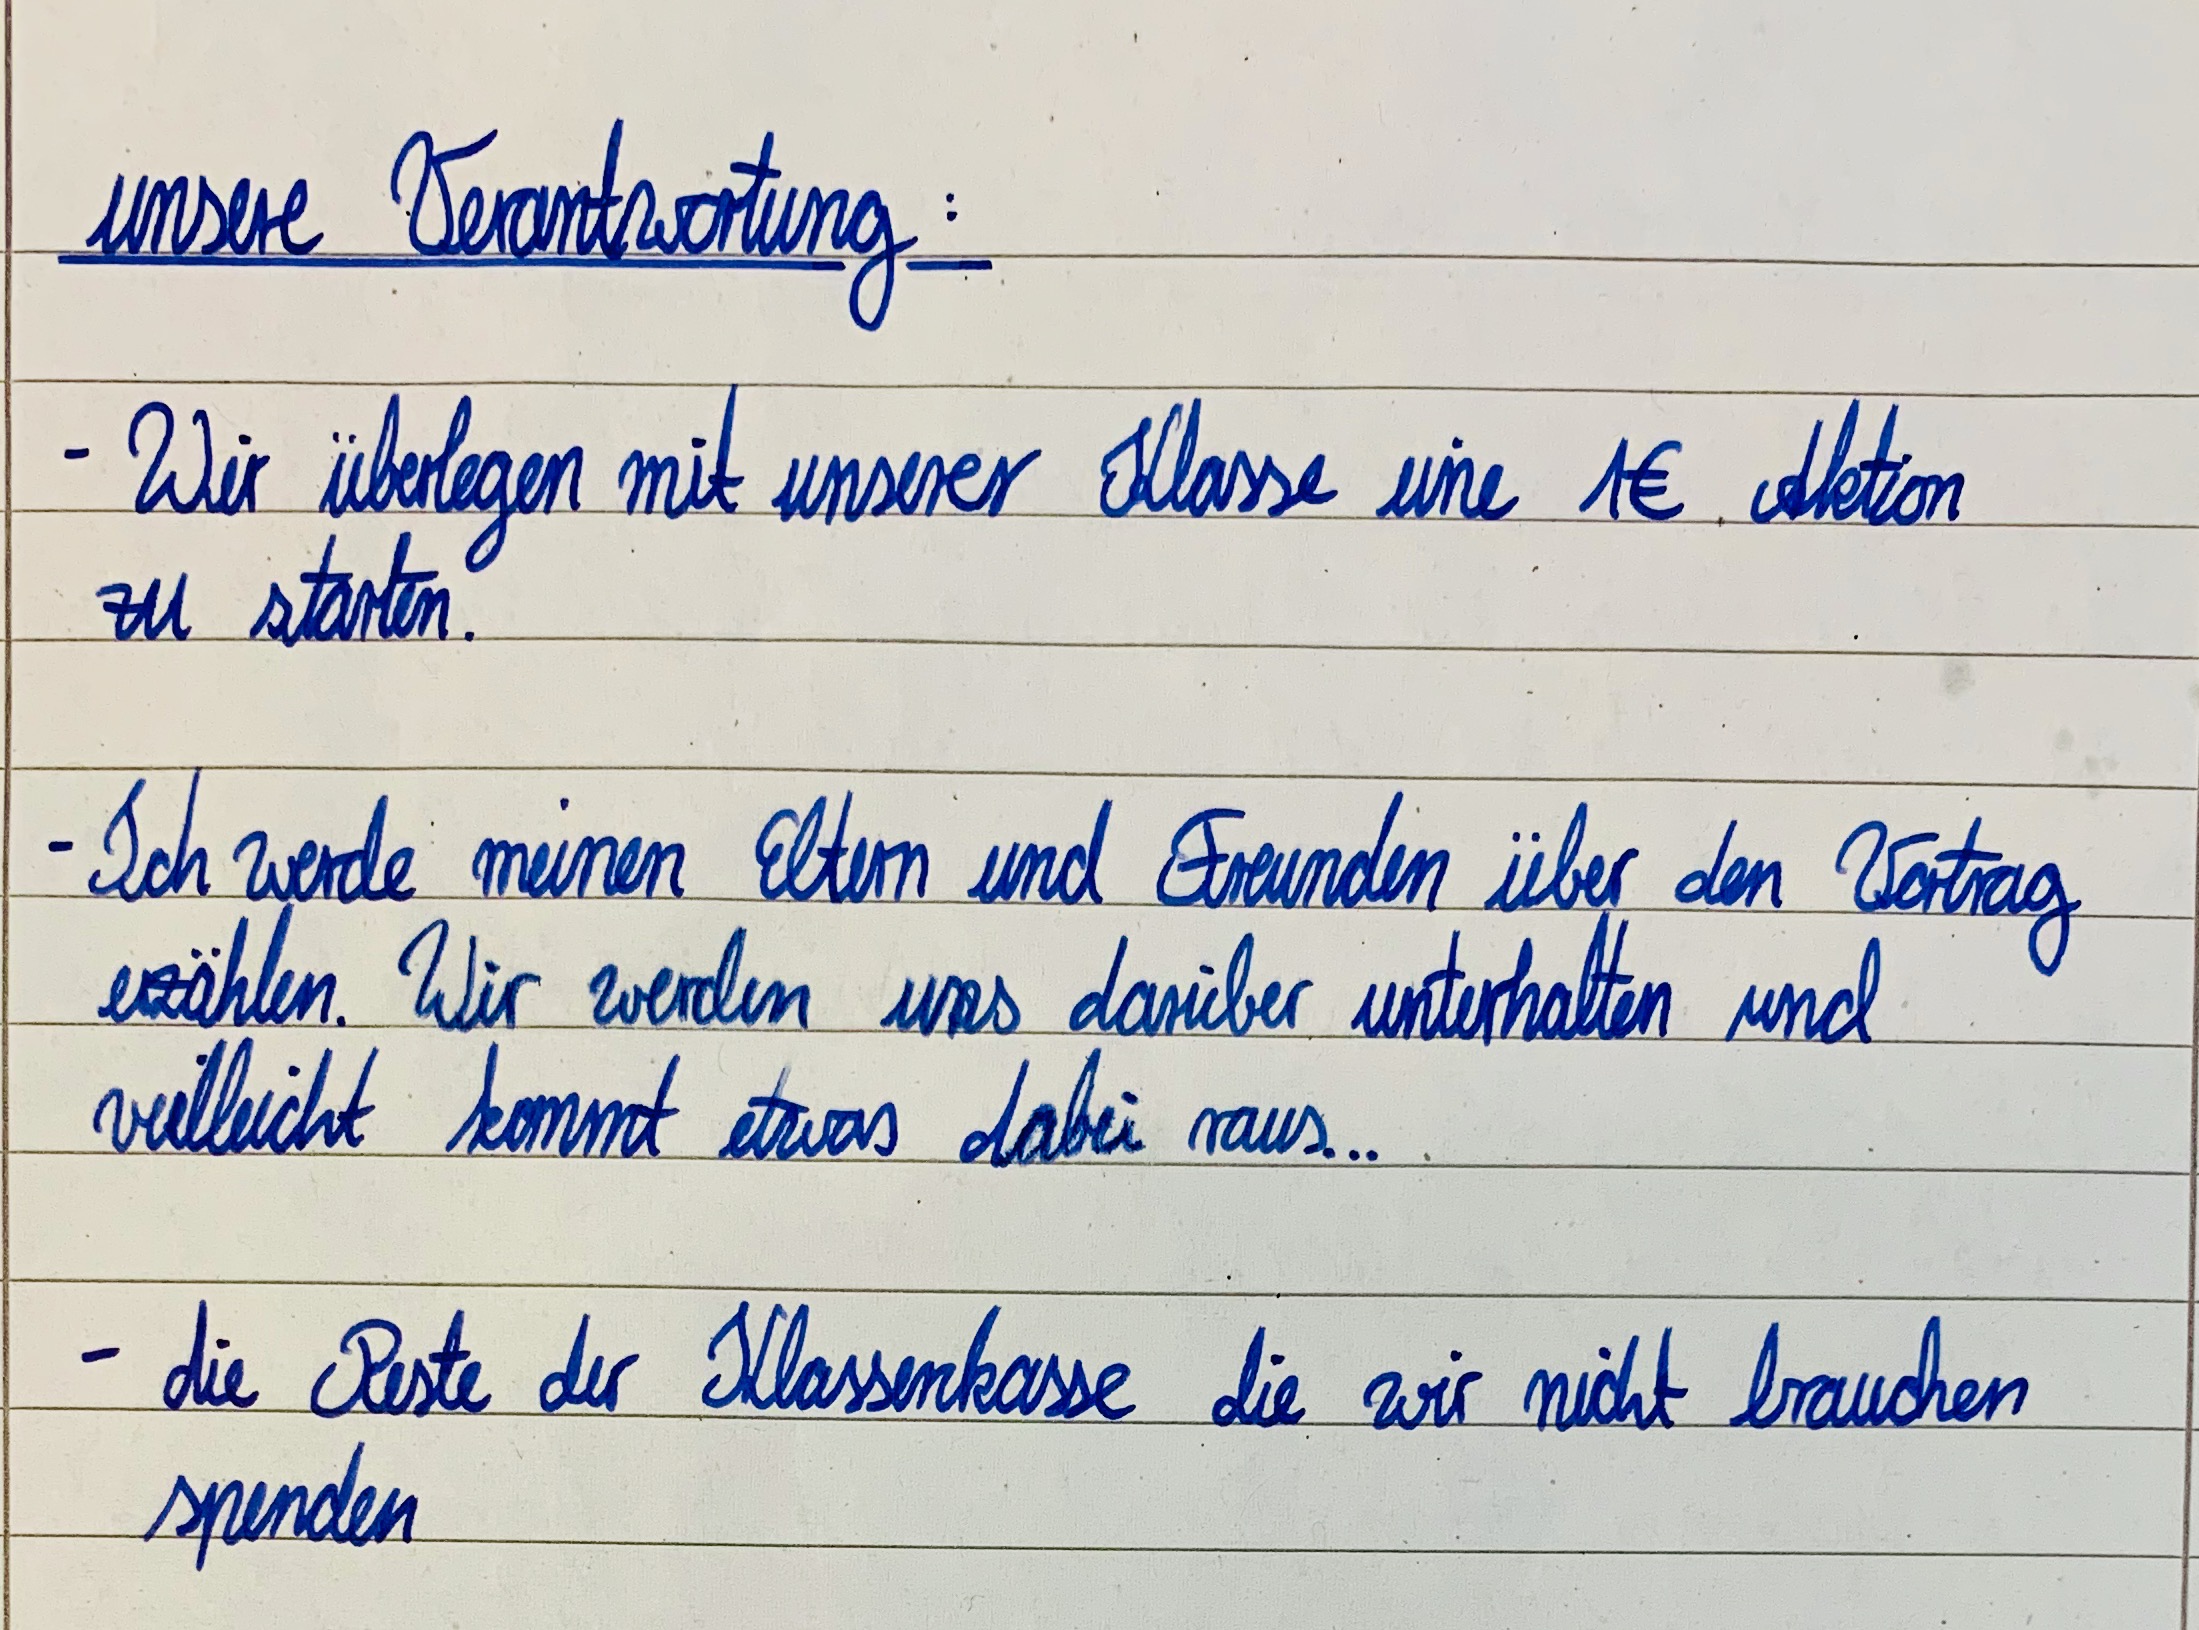 unsere Verantwortung:
- Wir überlegen mit unserer Klasse eine 1€ Aktion
zu starten.
- Ich werde meinen Eltern und Freunden über den Vortrag
erzählen. Wir werden uns darüber unterhalten und
veilleicht kommt etwas dabei raus...
- die Reste der Klassenkasse die wir nicht brauchen
spenden